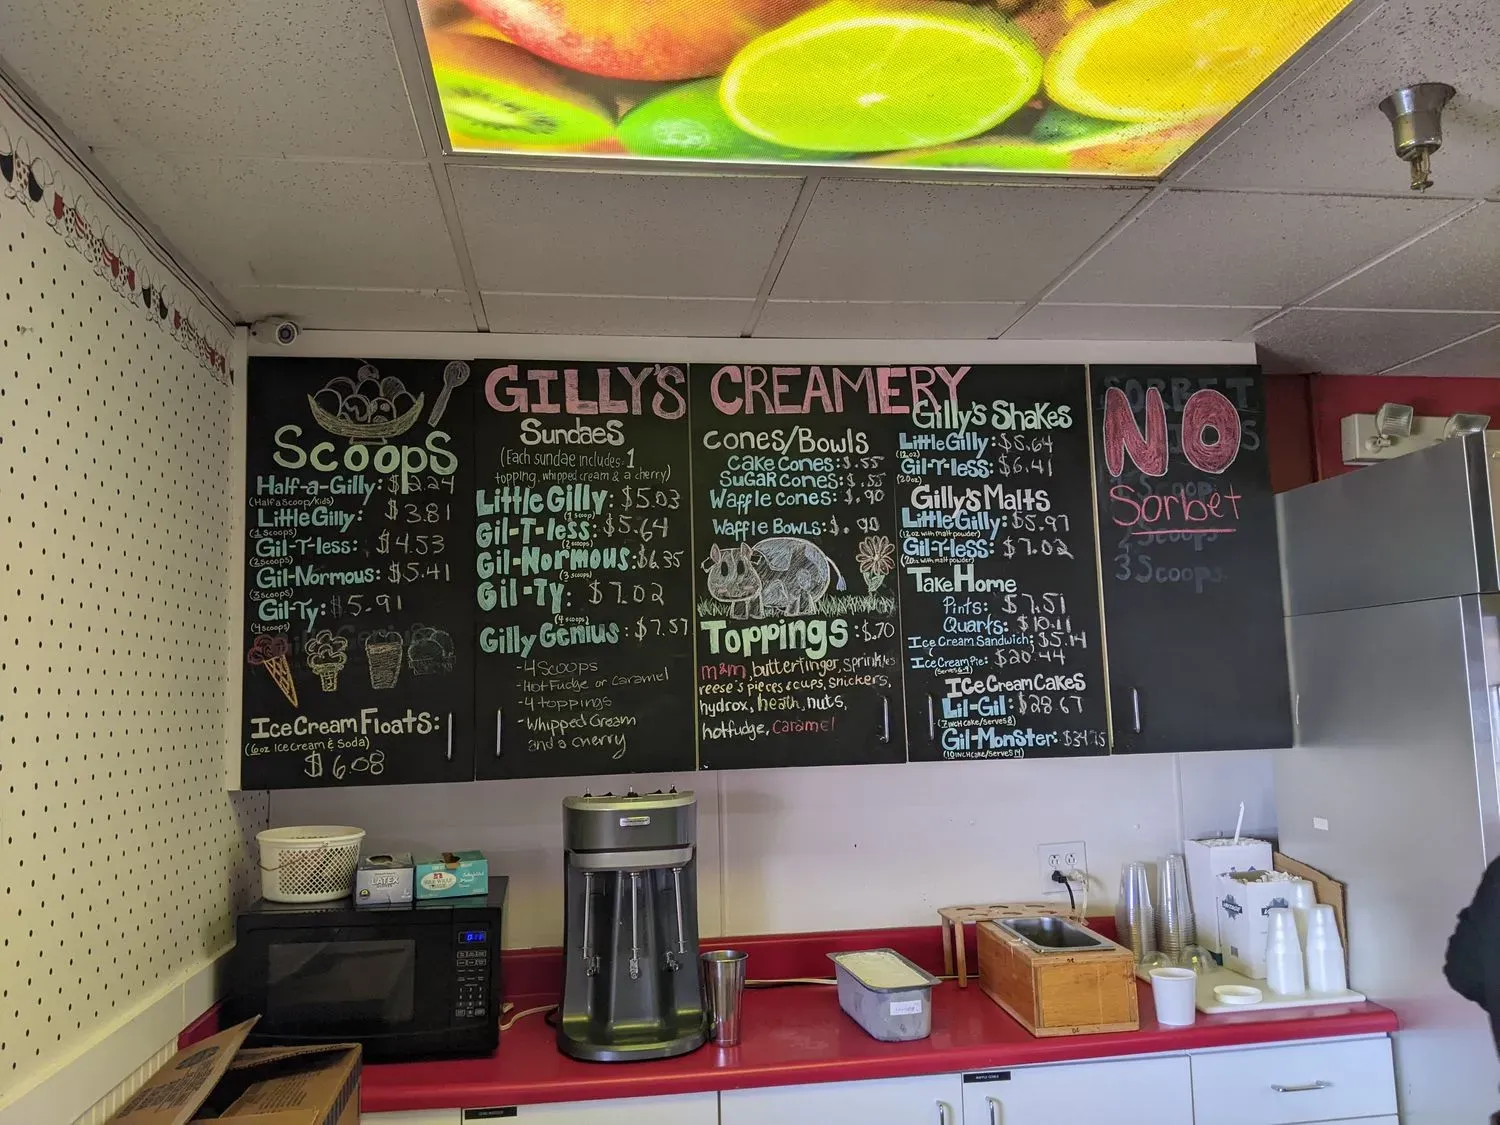 GILLY'S CREAMERY
Scoops
Half-a-Gilly: $2.24
(Half a Scoop/Kids)
Little Gilly: $3.81
(1 Scoops)
Gil-T-less: $4.53
(2 scoops)
Gil-Normous: $5.41
(3 scoops)
Gil-Ty: $5.91
(4 scoops)
Ice Cream Floats:
(6oz Ice Cream & Soda)
$6.08
Sundaes
(Each sundae includes: 1
topping, whipped cream & a cherry)
Little Gilly: $5.03
(1 scoop)
Gil-T-less: $5.64
(2 scoops)
Gil-Normous: $6.35
(3 scoops)
Gil-Ty: $7.02
(4 scoops)
Gilly Genius: $7.57
- 4 Scoops
- Hot Fudge or Caramel
- 4 toppings
- Whipped Cream
and a cherry
Cones/Bowls
Cake Cones: $.55
Sugar Cones: $.55
Waffle Cones: $.90
Waffle Bowls: $.90
Toppings: $.70
m&m, butterfinger, sprinkles
reese's pieces & cups, snickers,
hydrox, heath, nuts,
hotfudge, caramel
Gilly's Shakes
Little Gilly: $5.64
(12oz)
Gil-T-less: $6.41
(20oz)
Gilly's Malts
Little Gilly: $5.97
(12oz with malt powder)
Gil-T-less: $7.02
(20oz with malt powder)
Take Home
Pints: $7.51
Quarts: $10.11
Ice Cream Sandwich: $5.14
Ice Cream Pie: $20.44
Ice Cream Cakes
Lil-Gil: $28.67
(7inch cake/serves 8)
Gil-Monster: $34.75
(10inch cake/serves 14)
SORBET
NO
Sorbet
2 Scoops
3 Scoops
LATEX